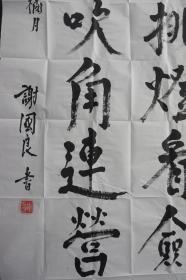 挑燈看劍
吹角連營
月
謝國良書